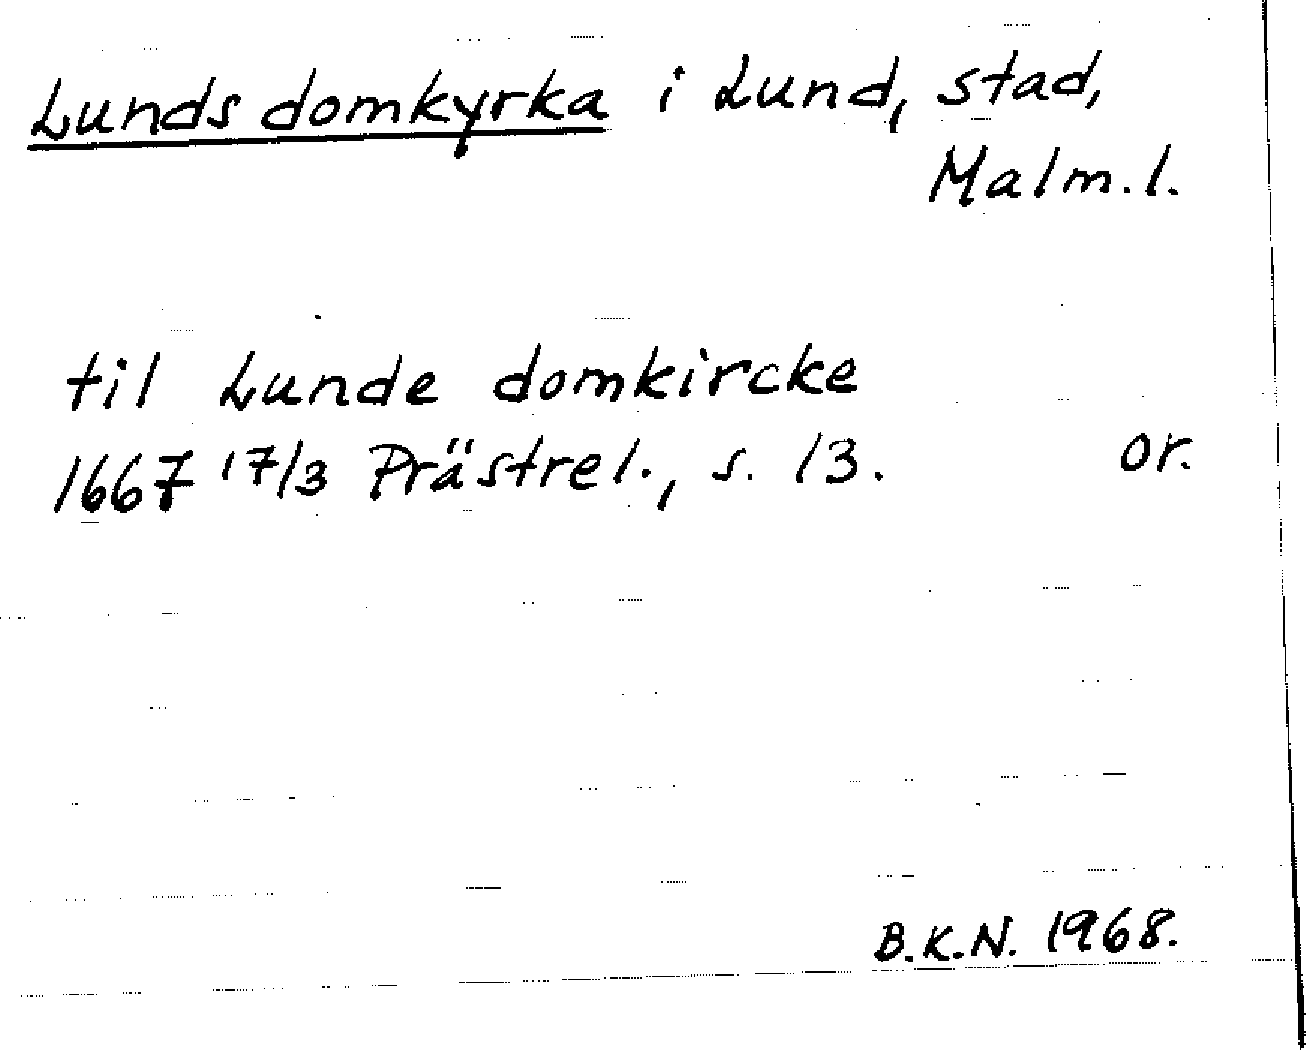 Lunds domkyrka i Lund, stad,
Malm.l.
til Lunde domkircke
1667 17/3 Prästrel., s. 13. or.
B.K.N. 1968.